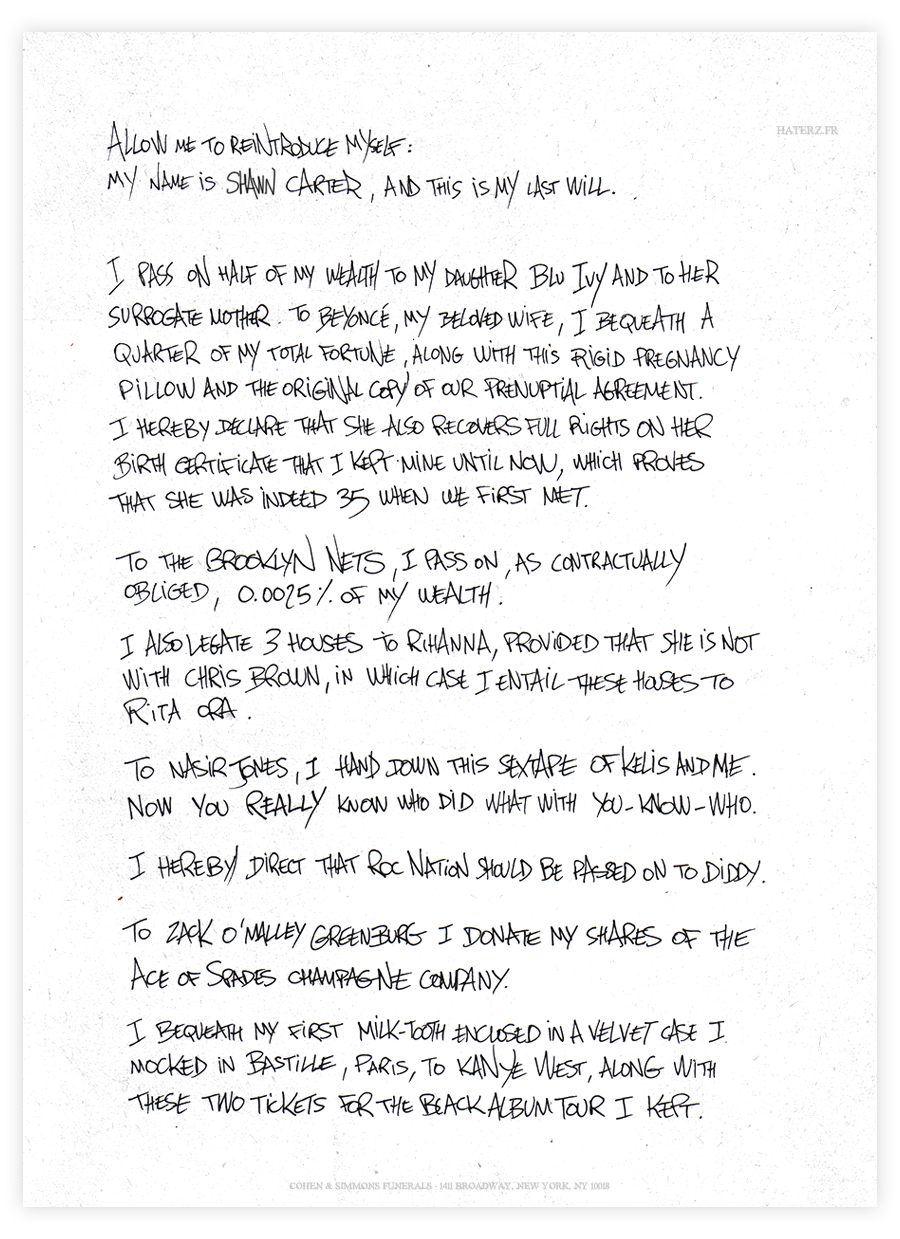 HATERZ.FR
ALLOW ME TO REINTRODUCE MYSELF:
MY NAME IS SHAWN CARTER, AND THIS IS MY LAST WILL.
I PASS ON HALF OF MY WEALTH TO MY DAUGHTER BLU IVY AND TO HER
SURROGATE MOTHER. TO BEYONCÉ, MY BELOVED WIFE, I BEQUEATH A
QUARTER OF MY TOTAL FORTUNE, ALONG WITH THIS RIGID PREGNANCY
PILLOW AND THE ORIGINAL COPY OF OUR PRENUPTIAL AGREEMENT.
I HEREBY DECLARE THAT SHE ALSO RECOVERS FULL RIGHTS ON HER
BIRTH CERTIFICATE THAT I KEPT MINE UNTIL NOW, WHICH PROVES
THAT SHE WAS INDEED 35 WHEN WE FIRST MET.
TO THE BROOKLYN NETS, I PASS ON, AS CONTRACTUALLY
OBLIGED, 0.0025% OF MY WEALTH.
I ALSO LEGATE 3 HOUSES TO RIHANNA, PROVIDED THAT SHE IS NOT
WITH CHRIS BROWN, IN WHICH CASE I ENTAIL THESE HOUSES TO
RITA ORA.
TO NASIR JONES, I HAND DOWN THIS SEXTAPE OF KELIS AND ME.
NOW YOU REALLY KNOW WHO DID WHAT WITH YOU-KNOW-WHO.
I HEREBY DIRECT THAT ROC NATION SHOULD BE PASSED ON TO DIDDY.
TO ZACK O'MALLEY GREENBURG I DONATE MY SHARES OF THE
ACE OF SPADES CHAMPAGNE COMPANY.
I BEQUEATH MY FIRST MILK-TOOTH ENCLOSED IN A VELVET CASE I
MOCKED IN BASTILLE, PARIS, TO KANYE WEST, ALONG WITH
THESE TWO TICKETS FOR THE BLACK ALBUM TOUR I KEPT.
COHEN & SIMMONS FUNERALS · 1411 BROADWAY, NEW YORK, NY 10018